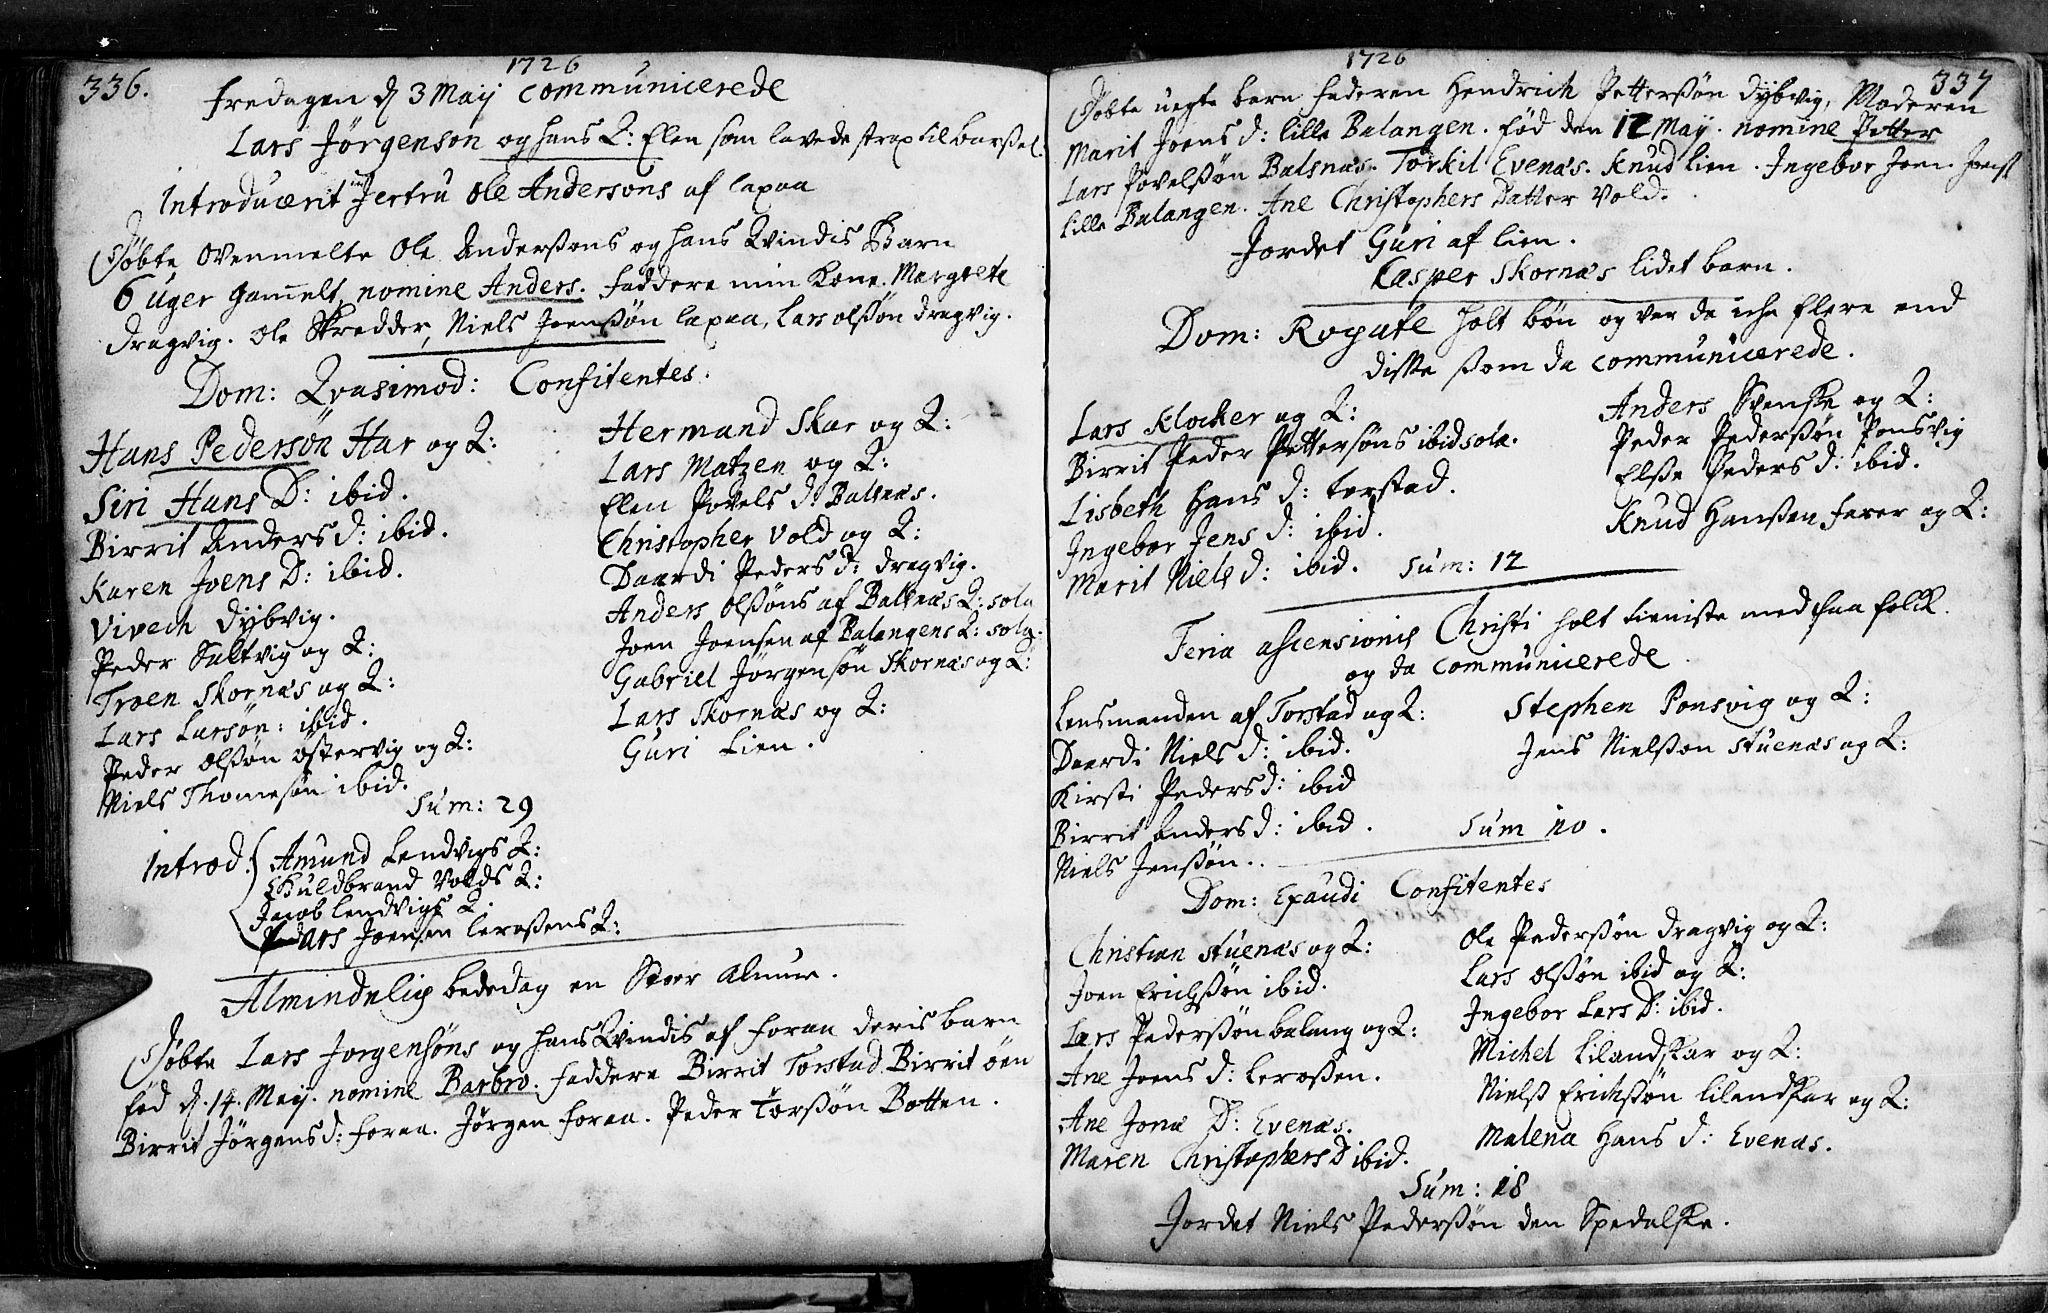 336.
1726
fredagen d 3 Maij communicerede
Lars Jörgenson og hans Q: Elen som lavede strax til barßel.
Introducerit Jertru Ole Andersons af lapaa
Döbte Ovenmelte Ole Anderßons og hans Qvindis Barn
6 uger gamelt nomine Anders. faddere min Kone. Margrete
dragvig. Ole Skredder, Niels Joenßön lapaa, Lars olßön dragvig.
Dom: Qvasimod: Confitentes.
Hans Pedersön Har og Q:
Siri Hans D: ibid.
Birrit Anders d: ibid.
Karen Joens D: ibid.
Vivech dybvig.
Peder Saltvig og Q:
Troen Skornæs og Q:
Lars Larsön: ibid.
Peder olßön östervig og Q:
Niels Thomesön ibid.
Hermand Skar og Q:
Lars Matzen og Q:
Elen Povels d: Balsnæs.
Christopher Vold og Q:
Daardi Peders d: dragvig.
Anders olßöns af Balsnæs Q: sola
Joen Joensen af Balangens Q: sola.
Gabriel Jörgensön Skornæs og Q:
Lars Skornæs og Q:
Guri Lien.
Sum: 29
Introd. Amund Lendvigs Q:
Huldbrand Volds Q:
Jacob lendvigs Q.
Lars Joensen leroßens Q:
Almindelig bededag en Stoer almue.
Döbte Lars Jorgensöns og hans Qvindis af foraa deris barn
fød d. 14. Maij. nomine Barbro. faddere Birrit Torstad Birrit öen
Birrit Jörgens d: foraa. Jörgen foraa. Peder Torßön Botten.
1726
337
Döbte uegte barn faderen Hendrich Petterßön dybvig, Moderen
Marit Joens d: lille Balangen. föd den 12 May. nomine Petter
Lars Povelßön Balsnæs. Torkil Evenæs. Knud lien. Ingebor Joen Joens
lille Balangen. Ane Christophers datter Vold.
Jordet Guri af lien.
Casper Skornæs lidet barn.
Dom: Rogate holt bön og var da iche flere end
diße ßom da communicerede.
Lars Klocker og Q:
Birrit Peder Pettersöns ibid sola.
Lisbeth Hans d: torstad.
Ingebor Jens d: ibid.
Marit Niels d: ibid. Sum: 12
Anders Svenske og Q:
Peder Pederßön Ponsvig
Elße Peders d: ibid.
Knud Hanßen farer og Q:
Feria ascensionis Christi holt tieniste med faa folck.
og da communicerede.
Lensmanden af Torstad og Q:
Daardi Niels d: ibid.
Kirsti Peders d: ibid
Birrit Anders d: ibid.
Niels Jenßön.
Stephen Ponsvig og Q:
Jens Nielßon Stuenæs og Q:
Sum 10.
Dom: Exaudi Confitentes
Christian Stuenæs og Q:
Joen Erichßön ibid.
Lars Pederßön balang og Q:
Ane Joens d: Leroßen.
Ane Jonæ D: Evenæs.
Maren Christophers D ibid.
Ole Pederßön dragvig og Q:
Lars olßön ibid og Q:
Ingebor Lars D: ibid.
Michel Lilandskar og Q:
Nielß Erichßön lilandskar og Q:
Malena Hans d: Evenæs.
Sum: 18
Jordet Niels Pederßön den Spedalske.